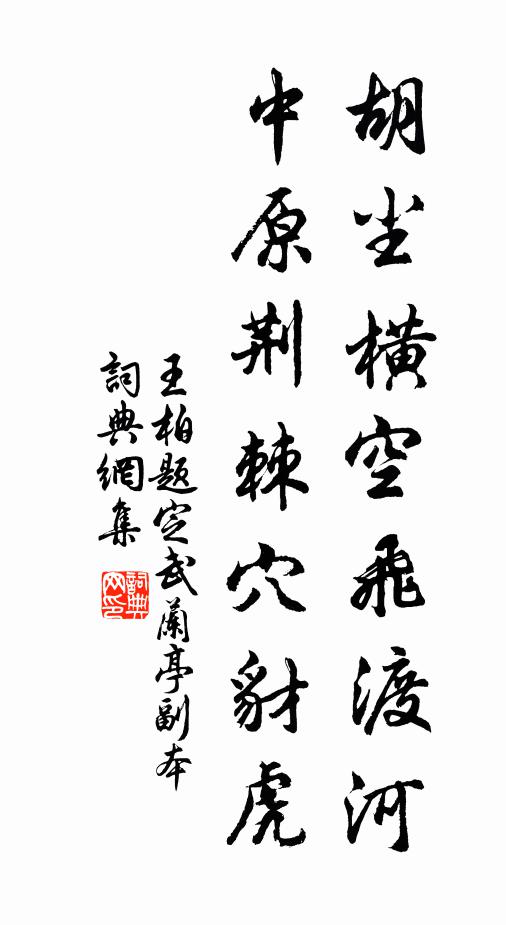 胡尘橫空飛渡河
中原荆棘穴豺虎
王柏題定武蘭亭副本
詞典網集
詞典網印